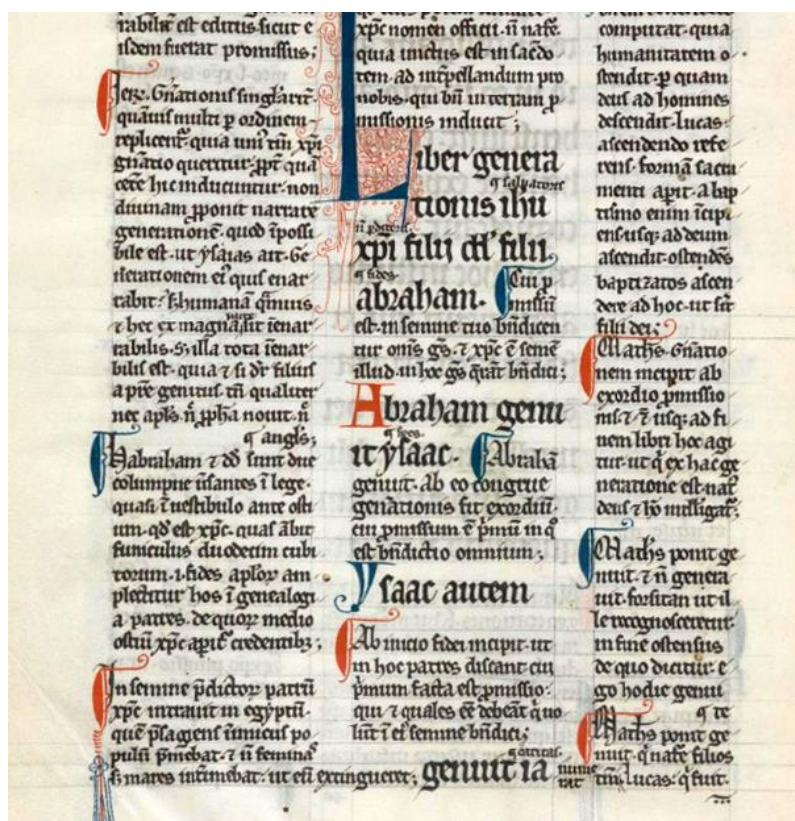 rabilis est editus sicut e
isdem fuerat promissus;
Jerꝰ. Gñationis singlarit̃.
quãuis multi ꝑ ordinem
replicent̃. quia uniꝰ tñ xp̃i
gñatio queritur. ꝓpt̃ quã
cet̃e hic inducuntur. non
diuinam ꝓponit narrare
generationẽ. quod ĩpossi
bile est. ut ysaias ait. Ge
nerationem eiꝰ quis enar
rabit. s; humanã q̃muis
⁊ hec ex magna sit ĩenar
rabilis. S; illa tota ĩenar
bilis est. quia ⁊ si dr̃ filius
a pr̃e genitus. tñ qualiter
nec apl̃s. ñ ꝓpha nouit. ñ
angl̃s;
Habraham ⁊ dd̃ sunt due
columpne ũsantes ĩ lege.
quasi ĩ uestibulo ante osti
um. qd̃ est xp̃c. quas ãbit
funiculus duodecim cubi
torum. i. fides aplor̃ am
plectitur hos ĩ genealogi
a patres. de quor̃ medio
ostiũ xp̃c aperit̃ credentib;;
In semine p̃dictor̃ patrũ
xp̃c intrauit in egyptũ.
quẽ p̃sagiens ĩnimicus po
pulũ p̃mebat. ⁊ ñ feminaˢ
s; mares intĩmebat. ut eũ extingueret;
xp̃c nomen officii. ñ nat̃e.
quia unctus est in sac̃do
tem. ad int̃pellandum pro
nobis. qui bñ in terram ꝓ
missionis inducit;
Liber genera
q̃ saluatoris
tionis ihu
xp̃i filij dd̃ filii
q̃ fides.
abraham. Cui ꝓ
missũ
est. in semine tuo bñdicen
tur om̃s gẽs. ⁊ xp̃c ẽ semẽ
illud. in hoc gẽs erãt bñdici;
Abraham genu
it ysaac. Abrahã
genuit. ab eo congrue
gen̾ationis fit exordiũ.
cui ꝓmissum ẽ p̃mũ in q̊
est bñdictio omnium;
Ysaac autem
Ab inicio fidei incipit. ut
in hoc patres discant. cui
p̃mum facta est ꝓmissio.
qui ⁊ quales eẽ debeãt q̊ uo
lũt ĩ eĩ semine bñdici;
genuit ia
computat. quia
humanitatem o
stendit. ꝑ quam
deus ad homines
descendit. Lucas.
ascendendo refe
rens. formã sacra
menti aperit. a bap
tismo enim ĩcipi
ens. usq; ad deum
ascendit. ostendẽs
baptizatos ascen
dere ad hoc. ut sĩt
filii dei;
Math̃s. Gñatio
nem incipit ab
exordio ꝓmissio
nis. ⁊ ĩ usq; ad fi
nem libri hoc agi
tur. ut q̃ ex hac ge
neratione est. natˢ
deus ⁊ hõ intelligat̃;
Math̃s ponit ge
nuit. ⁊ ñ genera
uit. forsitan ut il
le recognosceretur.
in fine ostensus
de quo dicitur. e
go hodie genui
te
Math̃s ponit ge
nuit. q̃ nat̃e filios
tm̃. Lucas. q̃ fuit.